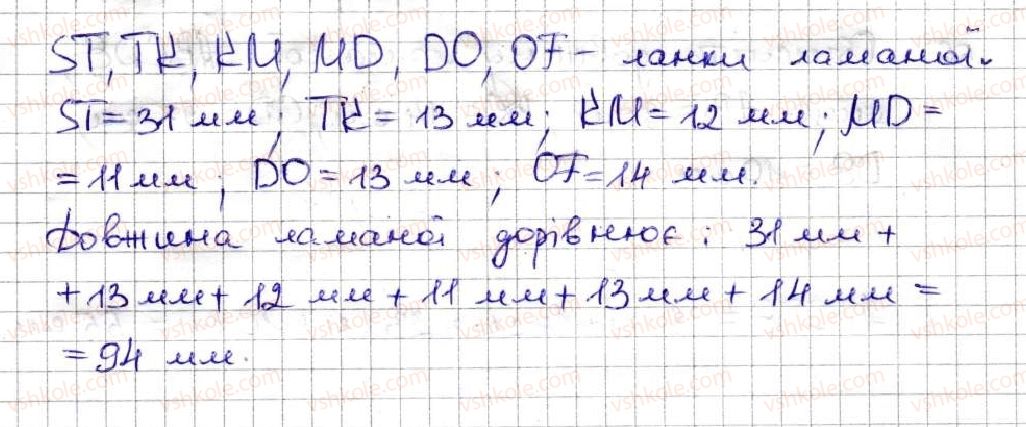 ST, TK, KM, MD, DO, OF - ланки ламаної.
ST = 31 мм; TK = 13 мм; KM = 12 мм; MD =
= 11 мм; DO = 13 мм; OF = 14 мм.
Довжина ламаної дорівнює: 31 мм +
+ 13 мм + 12 мм + 11 мм + 13 мм + 14 мм =
= 94 мм.